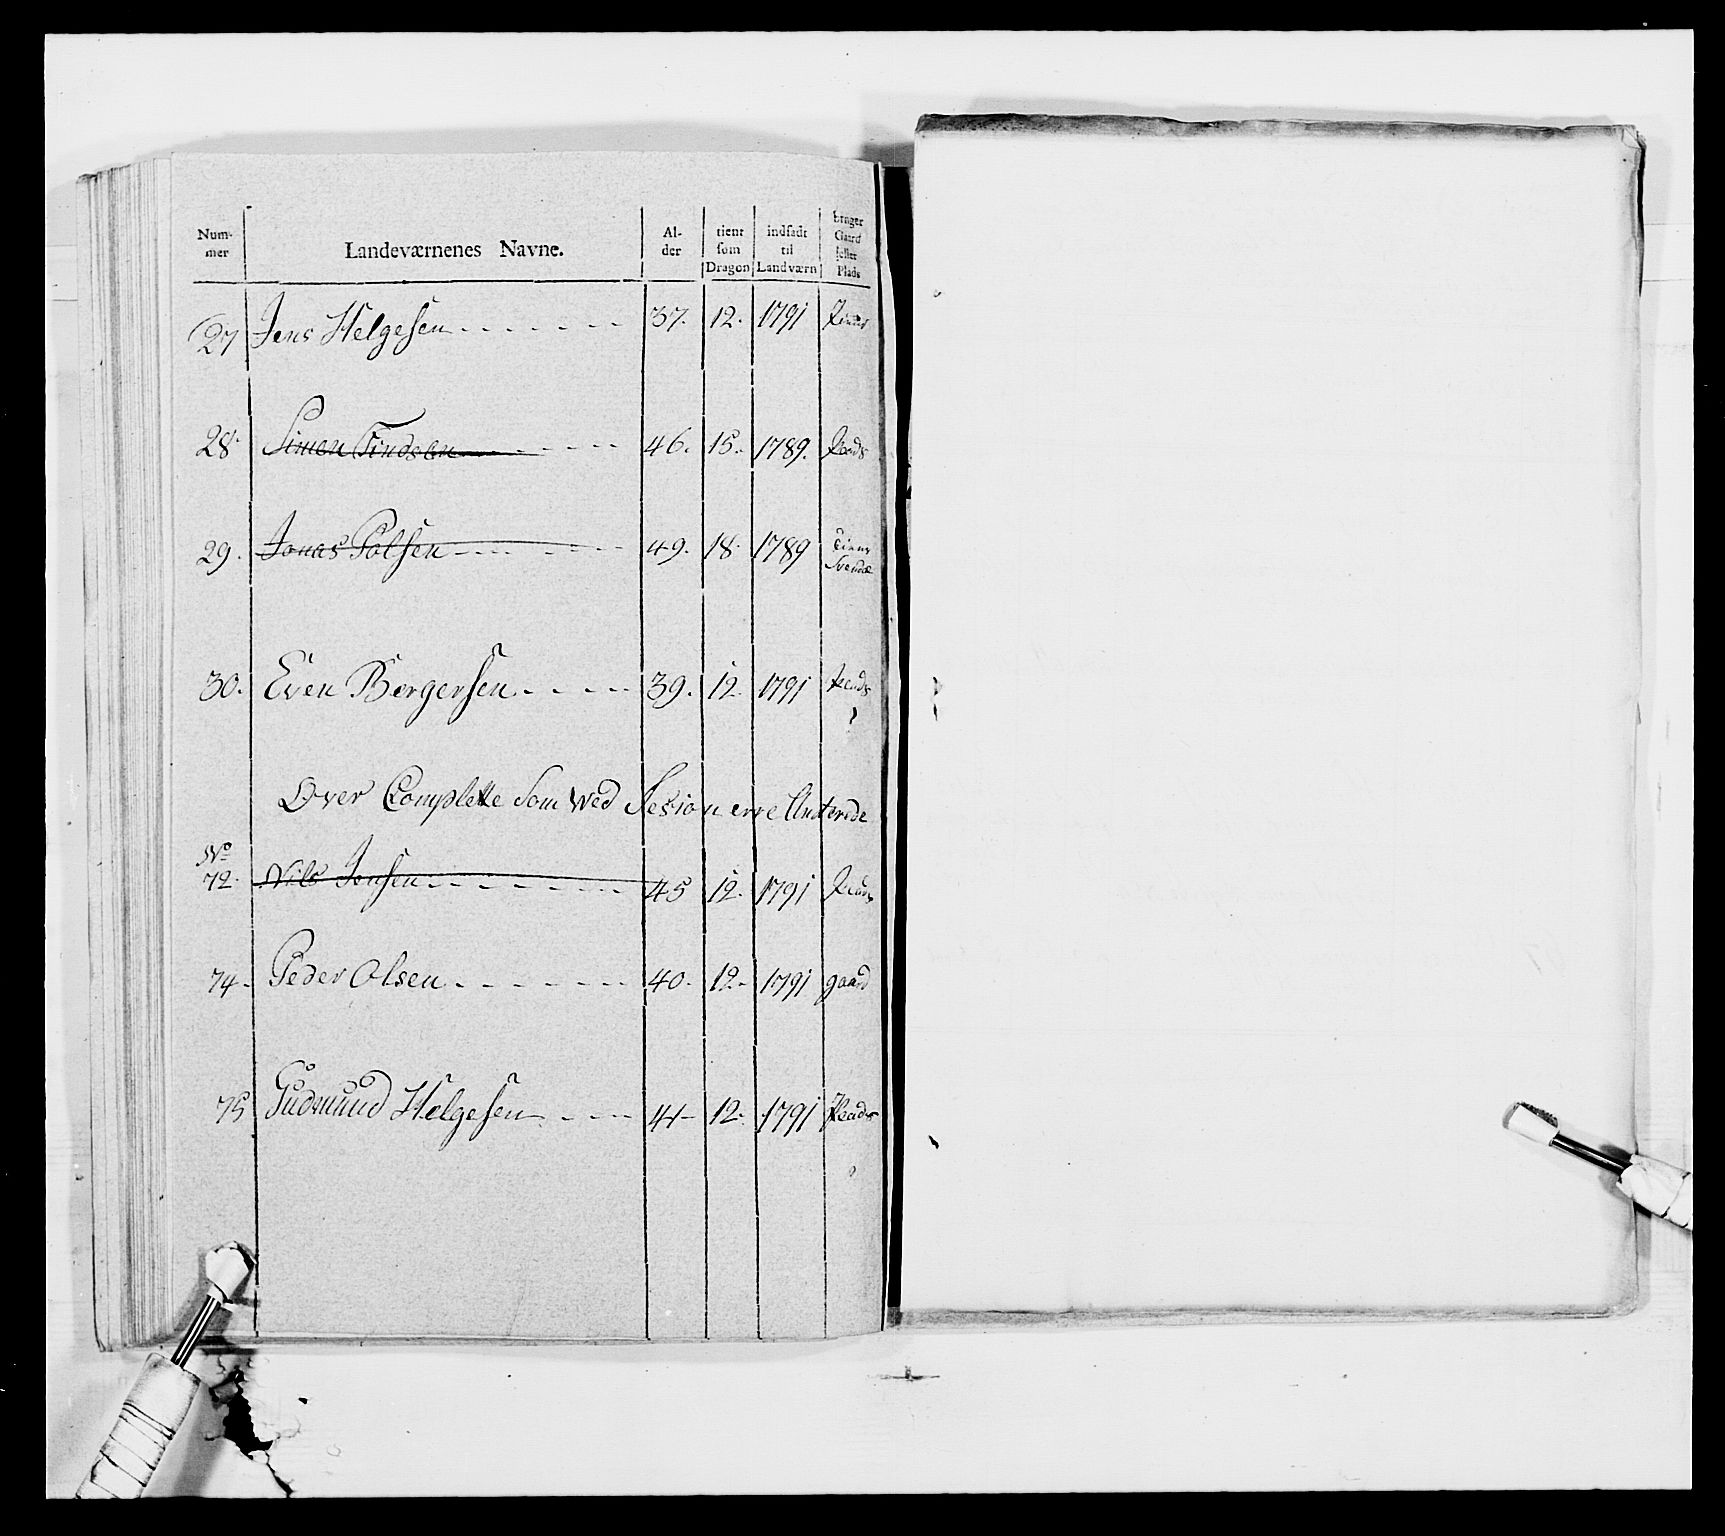 Num-
mer
Landeværnenes Navne.
Al-
der
tient
som
Dragon
indsadt
til
Landværn
bruger
Gaard
seller
Plads
27 Jens Helgesen 37. 12. 1791
28. Simen Findsen 46. 15. 1789. Plads
29. Jonas Polsen 49. 18. 1789 Tiener
Svende
30. Even Borgersen 39. 12. 1791 Plads
Over Complette som wed Sesion erre Anterede
No
72. Nils Jensen 45 12. 1791 Plads
74. Peder Olsen 40. 12. 1791 gaard
75 Gudmund Helgesen 41 12. 1791 Plads